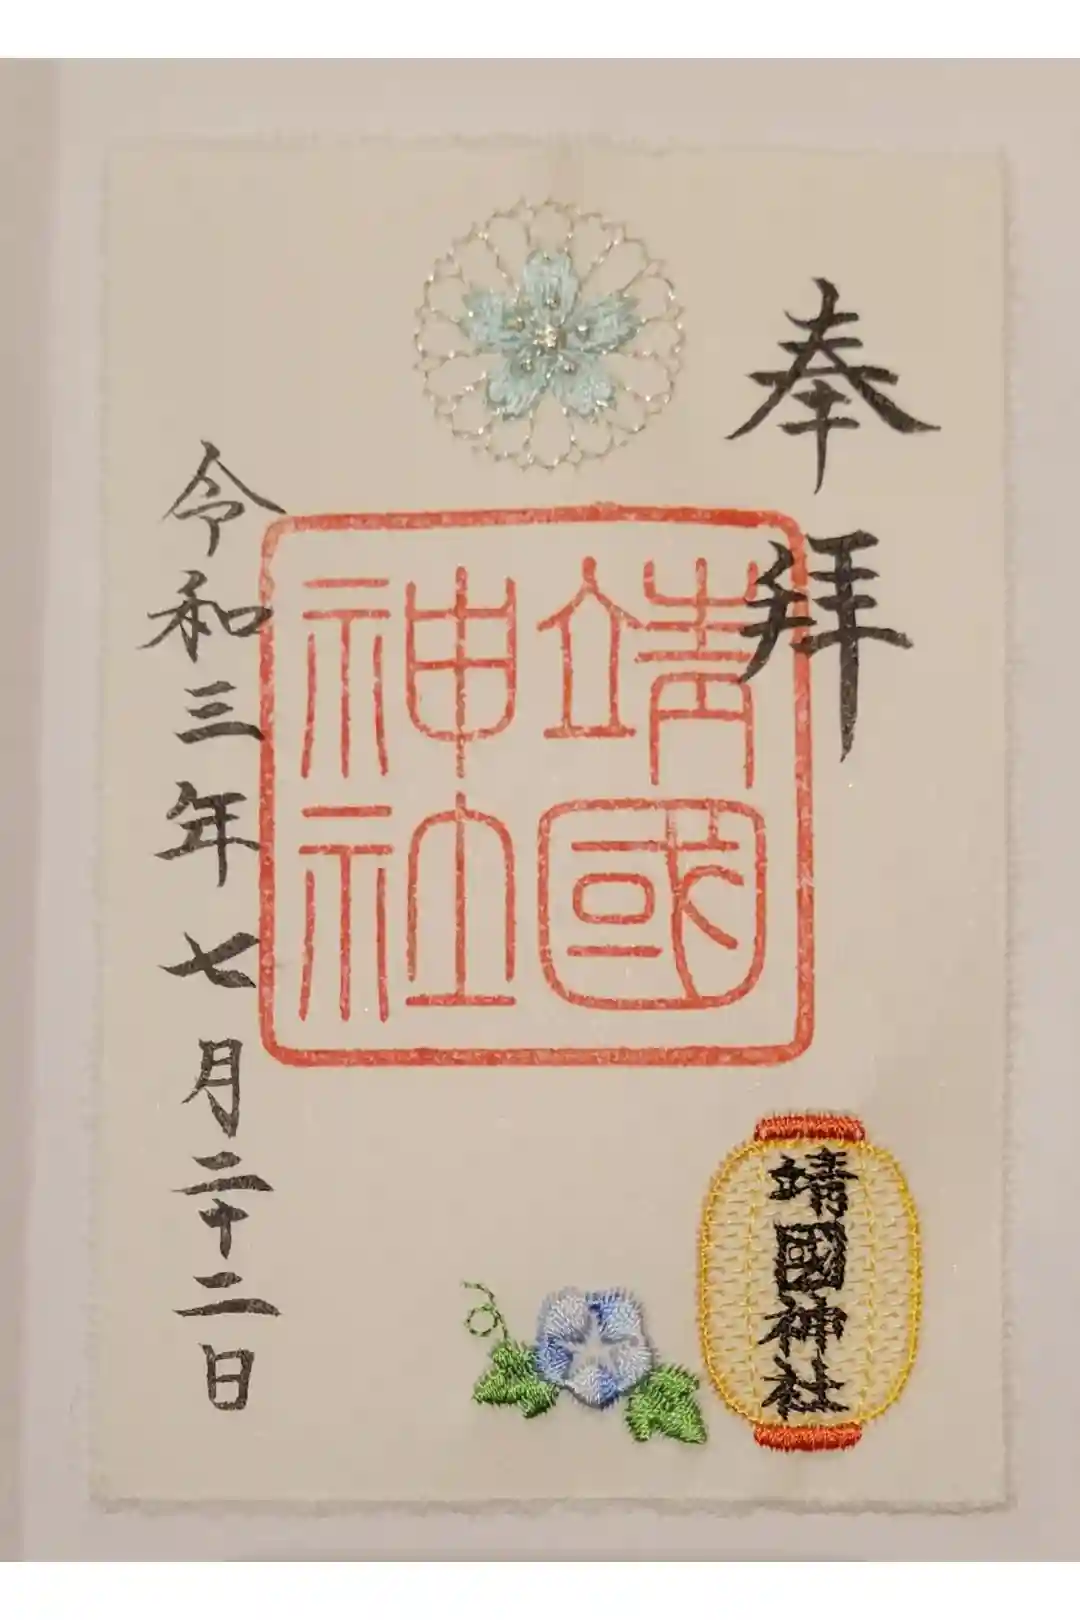 奉拝
靖國
神社
令和三年七月二十二日
靖國神社